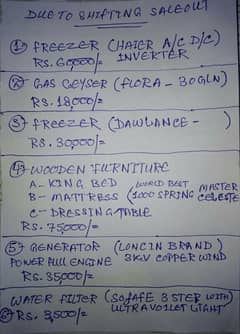 DUE TO SHIFTING SALEOUT
① FREEZER (HAIER A/C D/C)
INVERTER
RS. 60,000/=
② GAS GEYSER (FLORA - 30GLN)
RS. 18,000/=
③ FREEZER (DAWLANCE - )
RS. 30000/=
④ WOODEN FURNITURE
A - KING BED
B - MATTRESS (WORLD BEST MASTER
1000 SPRING CELESTE
C - DRESSING TABLE
RS. 75000/=
⑤ GENERATOR (LONCIN BRAND)
POWER FULL ENGINE 3KV COPPER WIND
RS. 35000/=
WATER FILTER (SOSAFE 3 STEP WITH)
⑥ RS. 3,500/= ULTRAVOILET LIGHT